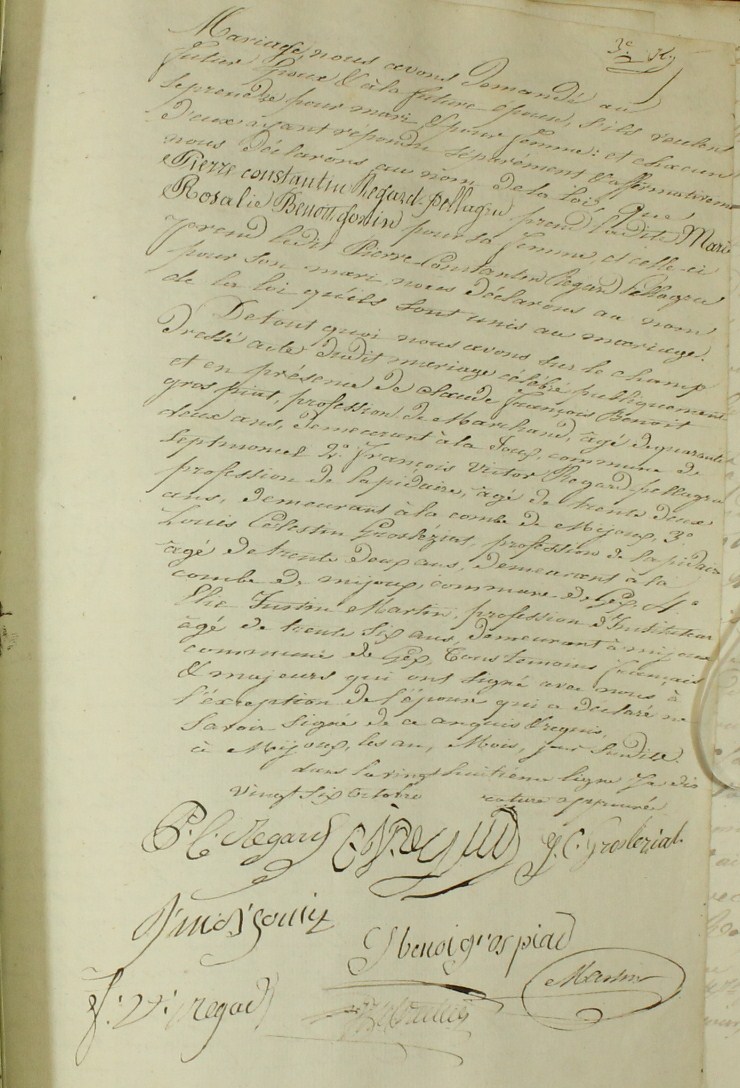 Mariage, nous avons Demandé au
futur Epoux & à la future Epouse, s'ils veulent
se prendre pour mari & pour femme: et chacun
D'eux ayant répondu séparément & affirmativement
nous Déclarons au nom de la loi, que
Pierre Constantin Regard pellagru prend ladite Marie
Rosalie Benoit gonin pour sa femme et celle-ci
prend ledit Pierre Constantin Regard Pellagru
pour son mari nous Déclarons au nom
de la loi qu'ils sont unis au mariage.
De tout quoi nous avons sur le champ
Dressé acte dudit mariage célébré publiquement
et en présence de Claude François Benoit
gros piat, profession de Marchand, âgé de quarante
deux ans, demeurant à la Joux, commune de
Septmoncel 2.° François Victor Regard pellagru
profession de lapidaire, âgé de trente deux
ans, demeurant à la combe de Mijoux, 3.°
Louis Célestin Grosléziat, profession de lapidaire
âgé de trente deux ans, demeurant à la
combe de mijoux, commune de Gex, 4.°
Martin, profession d'Instituteur
âgé de trente six ans, demeurant à mijoux
commune de Gex, Tous témoins français
& majeurs qui ont signé avec nous à
l'éxception de l'épouse qui a déclaré ne
savoir signé de ce enquis & requis,
à Mijoux, les an, Mois, jour susdits.
dans la vingt huitième ligne Je dis
vingt six Octobre rature approuvée
P. C. Regard J. C. Groslezial
J benoi gros piad
f. V. Regad Martin